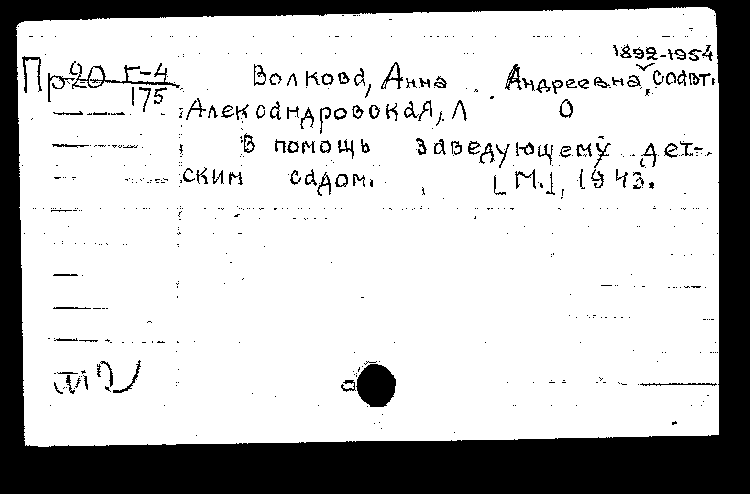 1892-1954
Пр20 Г-4
175
Волкова, Анна Андреевна, соавт.
Александровская, Л
О
В помощь заведующему дет-
ским садом. [М.], 1943.